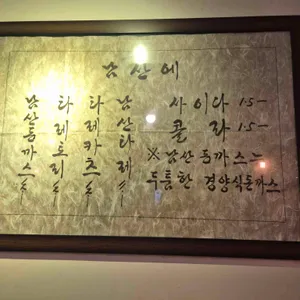 남산에
남산돈까스
타레토리
타레카츠
남산타레
사이다 1.5-
콜라 1.5-
※남산돈까스는
두툼한 경양식돈까스